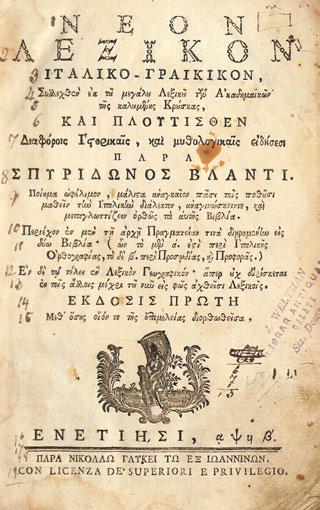 ΝΕΟΝ
ΛΕΞΙΚΟΝ
ΙΤΑΛΙΚΟ-ΓΡΑΙΚΙΚΟΝ,
Συλλεχθὲν ἐκ τοῦ μεγάλου Λεξικοῦ τῶν Ἀκαδημαικῶν
τῆς καλουμένης Κρούσκας,
ΚΑΙ ΠΛΟΥΤΙΣΘΕΝ
Διαφόροις Ἱστορικαῖς, καὶ μυθολογικαῖς εἰδήσεσι
ΠΑΡΑ
ΣΠΥΡΙΔΩΝΟΣ ΒΛΑΝΤΙ.
Ποίημα ὠφέλιμον, μάλιστα ἀναγκαῖον πᾶσι τοῖς ποθοῦσι
μαθεῖν τὴν Ἰταλικὴν διάλεκτον, ἀναγινώσκειν τε, καὶ
μεταγλωττίζειν ὀρθῶς τὰ αὐτῆς Βιβλία.
Περιέχον ἐν μὲν τῇ ἀρχῇ Πραγματείαν τινὰ διῃρημένην εἰς
δύω Βιβλία· (ὧν τὸ μὲν α. ἐστὶ περὶ Ἰταλικῆς
Ὀρθογραφίας, τὸ δὲ β. περὶ Προσῳδίας, ἢ Προφορᾶς.)
Ἐν δὲ τῷ τέλει ἓν Λεξικὸν Γεωγραφικόν· ἅπερ οὐχ εὑρίσκεται
ἐν τοῖς ἄλλοις μέχρι τοῦ νῦν εἰς φῶς ἀχθεῖσι Λεξικοῖς.
ΕΚΔΟΣΙΣ ΠΡΩΤΗ
Μεθ' ὅσης οἷόν τε τῆς ἐπιμελείας διορθωθεῖσα.
ΕΝΕΤΙΗΣΙ, αψϟβ.
ΠΑΡΑ ΝΙΚΟΛΑῼ ΓΛΥΚΕΙ ΤΩ ΕΞ ΙΩΑΝΝΙΝΩΝ.
CON LICENZA DE' SUPERIORI E PRIVILEGIO.